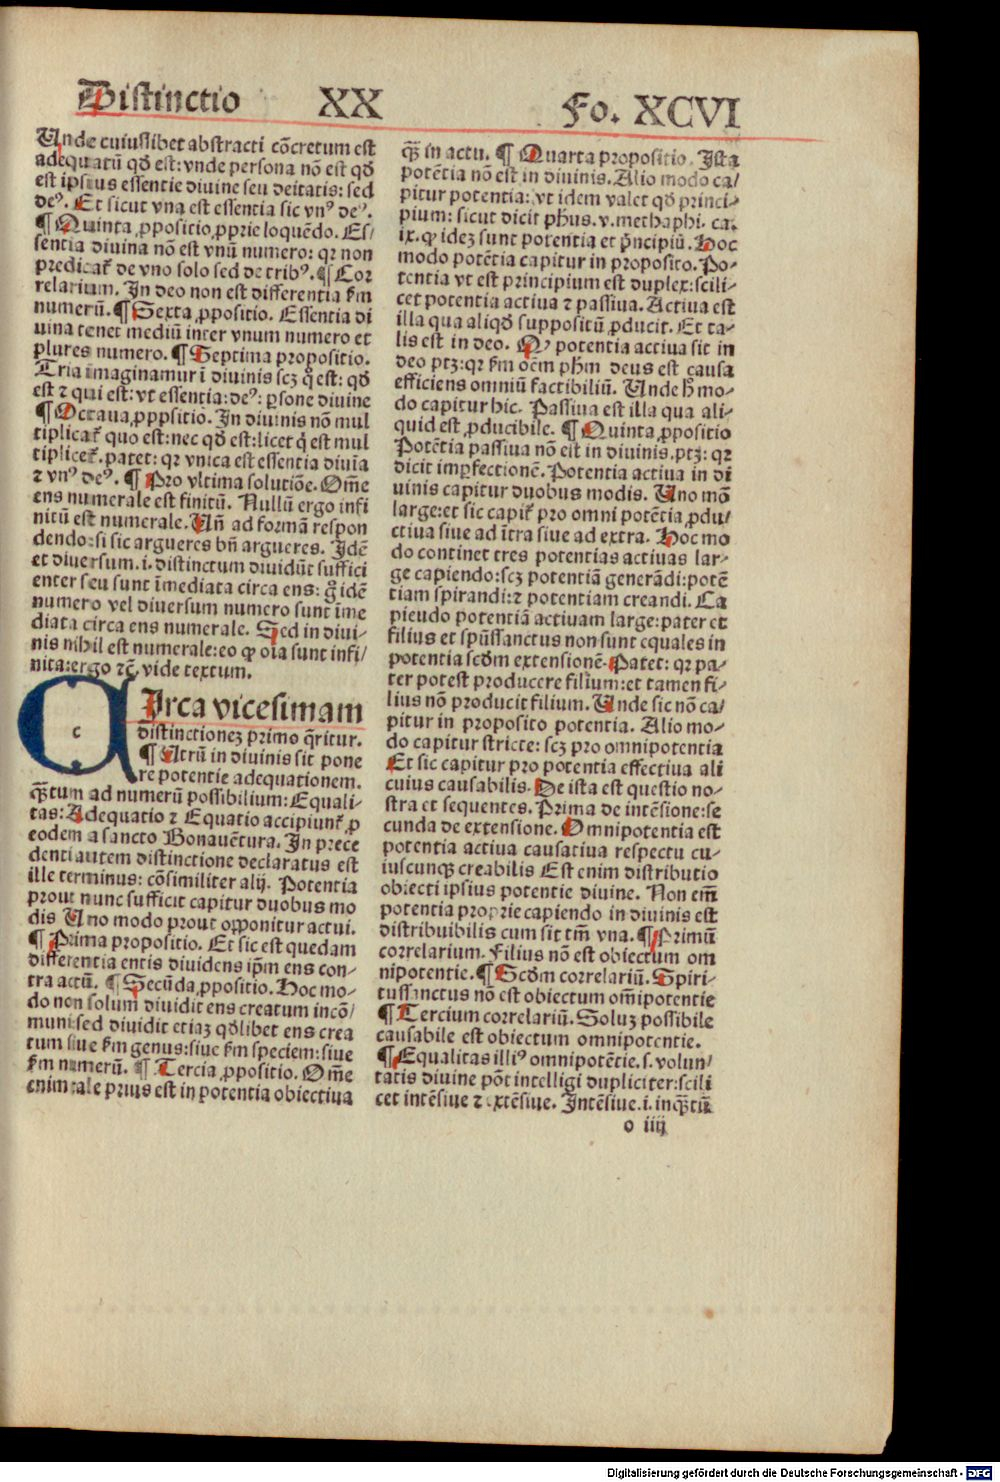 Distinctio XX Fo. XCVI
Unde cuiuslibet abstracti cõcretum est
adequatũ qđ est: vnde persona nõ est qđ
est ipsius essentie diuine seu deitatis: sed
deꝰ. Et sicut vna est essentia sic vnꝰ deꝰ.
¶ Quinta ꝓpositio ꝓprie loquẽdo. Es/
sentia diuina nõ est vnũ numero: qꝛ non
predicat̃ de vno solo sed de tribꝰ. ¶ Cor
relarium. In deo non est differentia ẜm
numerũ. ¶ Sexta ꝓpositio. Essentia di
uina tenet mediũ inter vnum numero et
plures numero. ¶ Septima propositio.
Tria imaginamur ĩ diuinis scꝫ q̊ est: qđ
est ⁊ qui est: vt essentia: deꝰ: ꝑsone diuine
¶ Octaua ꝓpositio. In diuinis nõ mul
tiplicat̃ quo est: nec qđ est: licet q̇ est mul
tiplicet̃. patet: qꝛ vnica est essentia diuĩa
⁊ vnꝰ deꝰ. ¶ Pro vltima solutiõe. Om̃e
ens numerale est finitũ. Nullũ ergo infi
nitũ est numerale. Uñ ad formã respon
dendo: si sic argueres bñ argueres. Idẽ
et diuersum .i. distinctum diuidũt suffici
enter seu sunt ĩmediata circa ens: g̊ idẽ
numero vel diuersum numero sunt ĩme
diata circa ens numerale. Sed in diui/
nis nihil est numerale: eo ꝙ oĩa sunt infi/
nita: ergo ⁊c̃. vide textum.
c
CIrca vicesimam
distinctionez primo q̃ritur.
¶ Utrũ in diuinis sit pone
re potentie adequationem.
q̃ꝫtum ad numerũ possibilium: Equali-
tas: Adequatio ⁊ Equatio accipiunt̃ ꝓ
eodem a sancto Bonauẽtura. In prece
denti autem distinctione declaratus est
ille terminus: cõsimiliter alij. Potentia
prout nunc sufficit capitur duobus mo
dis Uno modo prout opponitur actui.
¶ Prima propositio. Et sic est quedam
differentia entis diuidens ip̃m ens con-
tra actũ. ¶ Secũda ꝓpositio. Hoc mo-
do non solum diuidit ens creatum incõ/
muni sed diuidit etiaꝫ qđlibet ens crea
tum siue ẜm genus: siue ẜm speciem: siue
ẜm numerũ. ¶ Tercia ꝓpositio. Om̃e
enim tale prius est in potentia obiectiua
q̃ꝫ in actu. ¶ Quarta propositio. Ista
potẽtia nõ est in diuinis. Alio modo ca/
pitur potentia: vt idem valet qđ princi-
pium: sicut dicit ph̃us .v. methaphi. ca.
ix. ꝙ ideꝫ sunt potentia et p̃ncipiũ. Hoc
modo potẽtia capitur in proposito. Po-
tentia vt est principium est duplex: scili-
cet potentia actiua ⁊ passiua. Actiua est
illa qua aliqđ suppositũ ꝓducit. Et ta-
lis est in deo. Ꝙ potentia actiua sit in
deo ptꝫ: qꝛ ẜm oẽm ph̃m deus est causa
efficiens omniũ factibiliũ. Unde h̃ mo-
do capitur hic. Passiua est illa qua ali-
quid est ꝓducibile. ¶ Quinta ꝓpositio
Potẽtia passiua nõ est in diuinis. ptꝫ: qꝛ
dicit imꝑfectionẽ. Potentia actiua in di
uinis capitur duobus modis. Uno mõ
large: et sic capit̃ pro omni potẽtia ꝓdu/
ctiua siue ad ĩtra siue ad extra. Hoc mo
do continet tres potentias actiuas lar-
ge capiendo: scꝫ potentiã generãdi: potẽ
tiam spirandi: ⁊ potentiam creandi. Ca
piendo potentiã actiuam large: pater et
filius et spũssanctus non sunt equales in
potentia scđm extensionẽ. Patet: qꝛ pa-
ter potest producere filium: et tamen fi-
lius nõ producit filium. Unde sic nõ ca/
pitur in proposito potentia. Alio mo-
do capitur stricte: scꝫ pro omnipotentia
Et sic capitur pro potentia effectiua ali
cuius causabilis. De ista est questio no-
stra et sequentes. Prima de intẽsione: se
cunda de extensione. Omnipotentia est
potentia actiua causatiua respectu cu-
iuscunqꝫ creabilis Est enim distributio
obiecti ipsius potentie diuine. Non em̃
potentia proprie capiendo in diuinis est
distribuibilis cum sit tm̃ vna. ¶ Primũ
correlarium. Filius nõ est obiectum om
nipotentie. ¶ Scđm correlariũ. Spiri-
tussanctus nõ est obiectum om̃ipotentie
¶ Tercium correlariũ. Soluꝫ possibile
causabile est obiectum omnipotentie.
¶ Equalitas illiꝰ omnipotẽtie .s. volun/
tatis diuine põt intelligi dupliciter: scili
cet intẽsiue ⁊ extẽsiue. Intẽsiue .i. inq̃ꝫtũ
o iiij
Digitalisierung gefördert durch die Deutsche Forschungsgemeinschaft - DFG